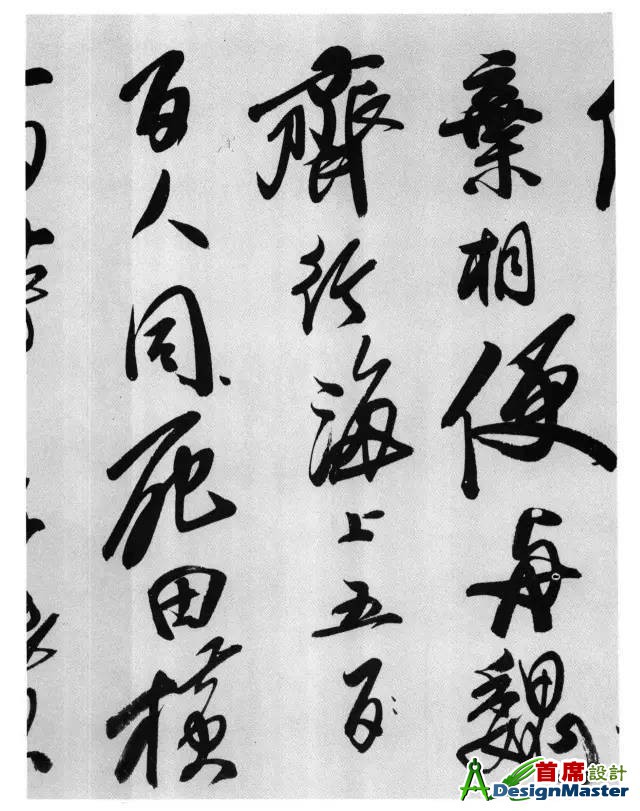 棄相便與魏
齊行海上五百
百人同死田橫
首席設計
ADesignMaster